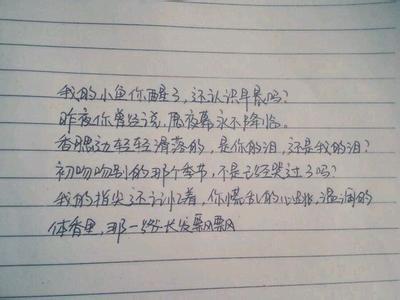 我的小鱼你醒了,还认识早晨吗?
昨夜你曾经说,愿夜幕永不降临。
香腮边轻轻滑落的,是你的泪,还是我的泪?
初吻吻别的那个季节,不是已经哭过了吗?
我的指尖还记忆着,你慌乱的心跳,温润的
体香里,那一缕长发飘飘